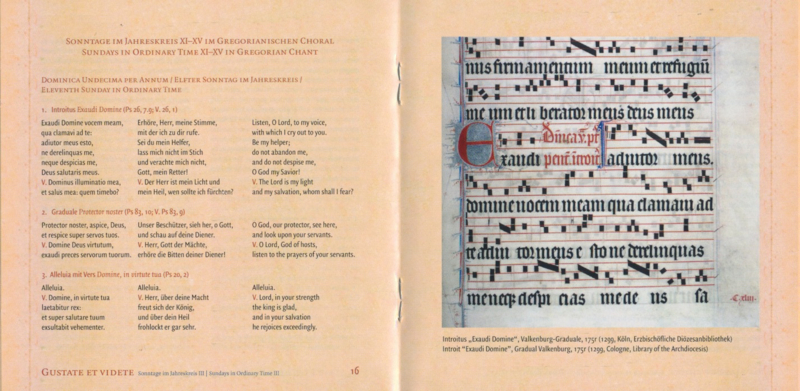 Sonntage im Jahreskreis XI–XV im Gregorianischen Choral
Sundays in Ordinary Time XI–XV in Gregorian Chant
Dominica Undecima per Annum / Elfter Sonntag im Jahreskreis /
Eleventh Sunday in Ordinary Time
1. Introitus Exaudi Domine (Ps 26, 7.9; V. 26, 1)
Exaudi Domine vocem meam,
qua clamavi ad te:
adiutor meus esto,
ne derelinquas me,
neque despicias me,
Deus salutaris meus.
V. Dominus illuminatio mea,
et salus mea: quem timebo?
Erhöre, Herr, meine Stimme,
mit der ich zu dir rufe.
Sei du mein Helfer,
lass mich nicht im Stich
und verachte mich nicht,
Gott, mein Retter!
V. Der Herr ist mein Licht und
mein Heil, wen sollte ich fürchten?
Listen, O Lord, to my voice,
with which I cry out to you.
Be my helper;
do not abandon me,
and do not despise me,
O God my Savior!
V. The Lord is my light
and my salvation, whom shall I fear?
2. Graduale Protector noster (Ps 83, 10; V. Ps 83, 9)
Protector noster, aspice, Deus,
et respice super servos tuos.
V. Domine Deus virtutum,
exaudi preces servorum tuorum.
Unser Beschützer, sieh her, o Gott,
und schau auf deine Diener.
V. Herr, Gott der Mächte,
erhöre die Bitten deiner Diener!
O God, our protector, see here,
and look upon your servants.
V. O Lord, God of hosts,
listen to the prayers of your servants.
3. Alleluia mit Vers Domine, in virtute tua (Ps 20, 2)
Alleluia.
V. Domine, in virtute tua
laetabitur rex:
et super salutare tuum
exsultabit vehementer.
Alleluia.
V. Herr, über deine Macht
freut sich der König,
und über dein Heil
frohlockt er gar sehr.
Alleluia.
V. Lord, in your strength
the king is glad,
and in your salvation
he rejoices exceedingly.
Gustate et videte Sonntage im Jahreskreis III | Sundays in Ordinary Time III 16
nus firmamentum meum et refugiū
me um et li berator meus deus meus
Exaudi adiutor meus.
domine uocem meam qua clamaui ad
te adiu tor meus e sto ne derelinquas
me neq; despi cias me de us sa
Introitus „Exaudi Domine“, Valkenburg-Graduale, 175r (1299, Köln, Erzbischöfliche Diözesanbibliothek)
Introit “Exaudi Domine”, Gradual Valkenburg, 175r (1299, Cologne, Library of the Archdiocesis)